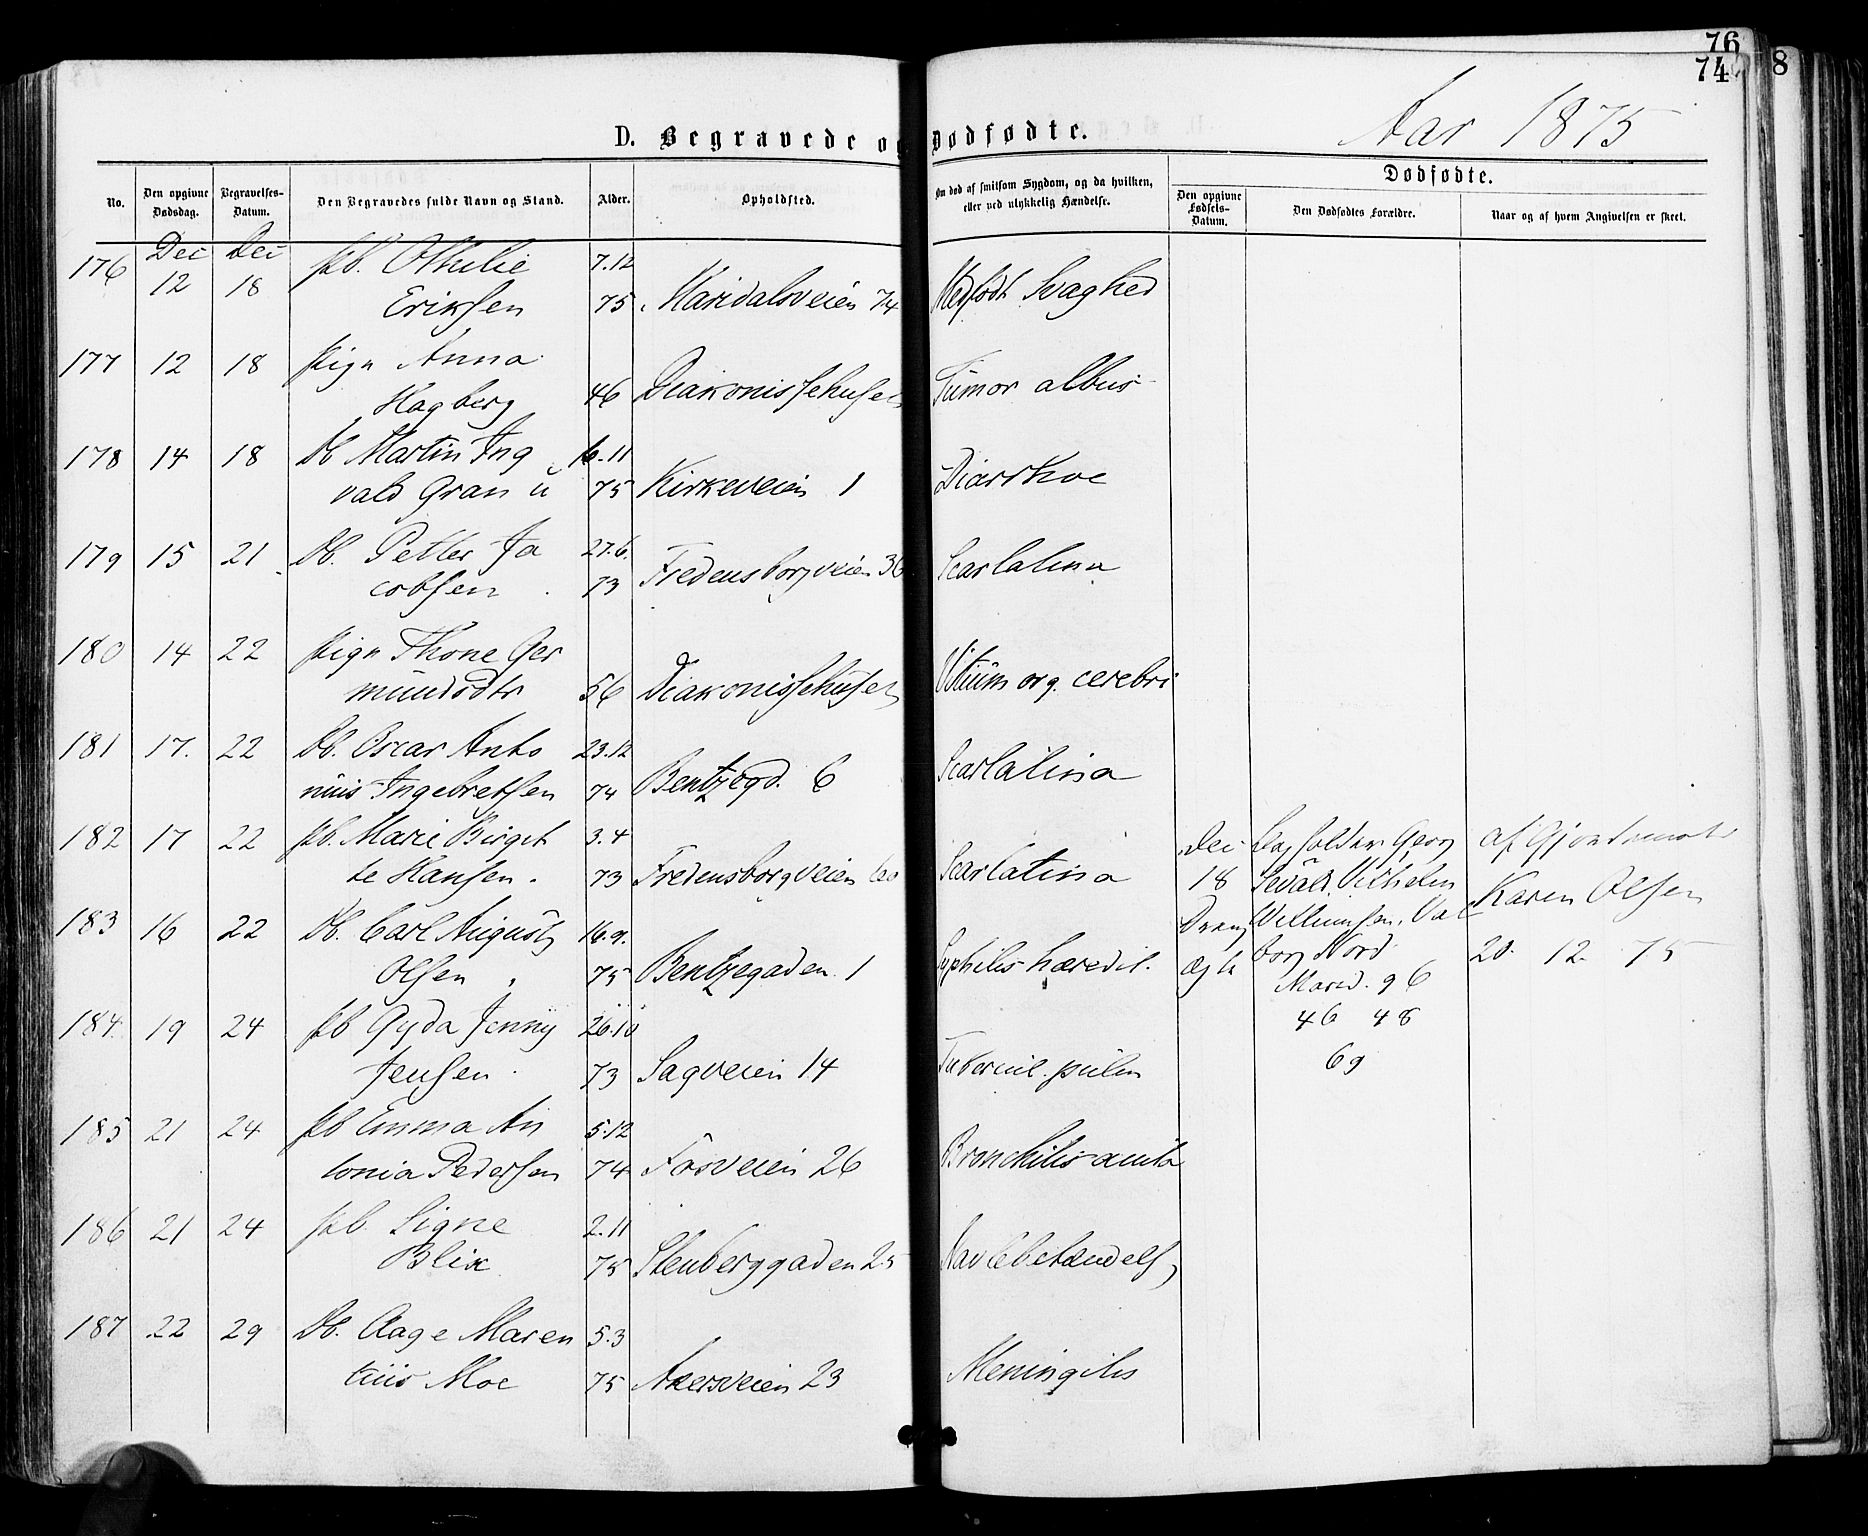 76
74
8
Aar 1875
D. Begravede og Dødfødte.
No. | Den opgivne Dødsdag. | Begravelses-Datum. | Den Begravedes fulde Navn og Stand. | Alder. | Opholdsted. | Om død af smitsom Sygdom, og da hvilken, eller ved ulykkelig Hændelse. | Dødfødte.
Den opgivne Fødsels-Datum. | Den Dødfødtes Forældre. | Naar og af hvem Angivelsen er skeet.
176 Dec 12 Dec 18 Pb. Othilie 7.12
Eriksen 75 Maridalsveien 74 Medfødt Svaghed
177 12 18 Pige Anna
Hagberg 46 Diakonissehuset Tumor albus
178 14 18 Db Martin Ing 6.11
vald Gran u 75 Kirkeveien 1 Diarrhoe
179 15 21 Db. Petter Ja 27.6.
cobsen 73 Fredensborgveien 36 Scarlatina
180 14 22 Pige Thone Ger
mundsdtr 56 Diakonissehuset Vitium org. cerebri
181 17. 22 Db. Oscar Anto 23.12
nius Ingebretsen 74 Bentzegd. 6 Scarlatina
182 17 22 Pb. Marie Birgit 3.4
te Hansen. 73 Fredensborgveien 60 Scarlatina
183 16 22 Db. Carl August 16.9.
Olsen 75 Bentzegaden 1 Syphilis hæredit.
184 19 24 Pb Gyda Jenny 26.10
Jensen 73 Sagveien 14 Tubercul. pulm
185 21 24 Pb Emma An 5.12
tonia Pedersen 74 Fosveien 26 Bronchitis acuta
186 21 24 Pb. Signe 2.11
Blix 75 Stenberggaden 25 Navlebetændelse
187 22 29 Db. Aage Maren 5.3
tius Moe 75 Akersveien 23 Meningitis
Dec 18 Dreng ægte
Georg
Sevald Vilhelm
Nord
Marid. 96
46 48
69
af Gjordemoder
Karen Olsen
20. 12. 75